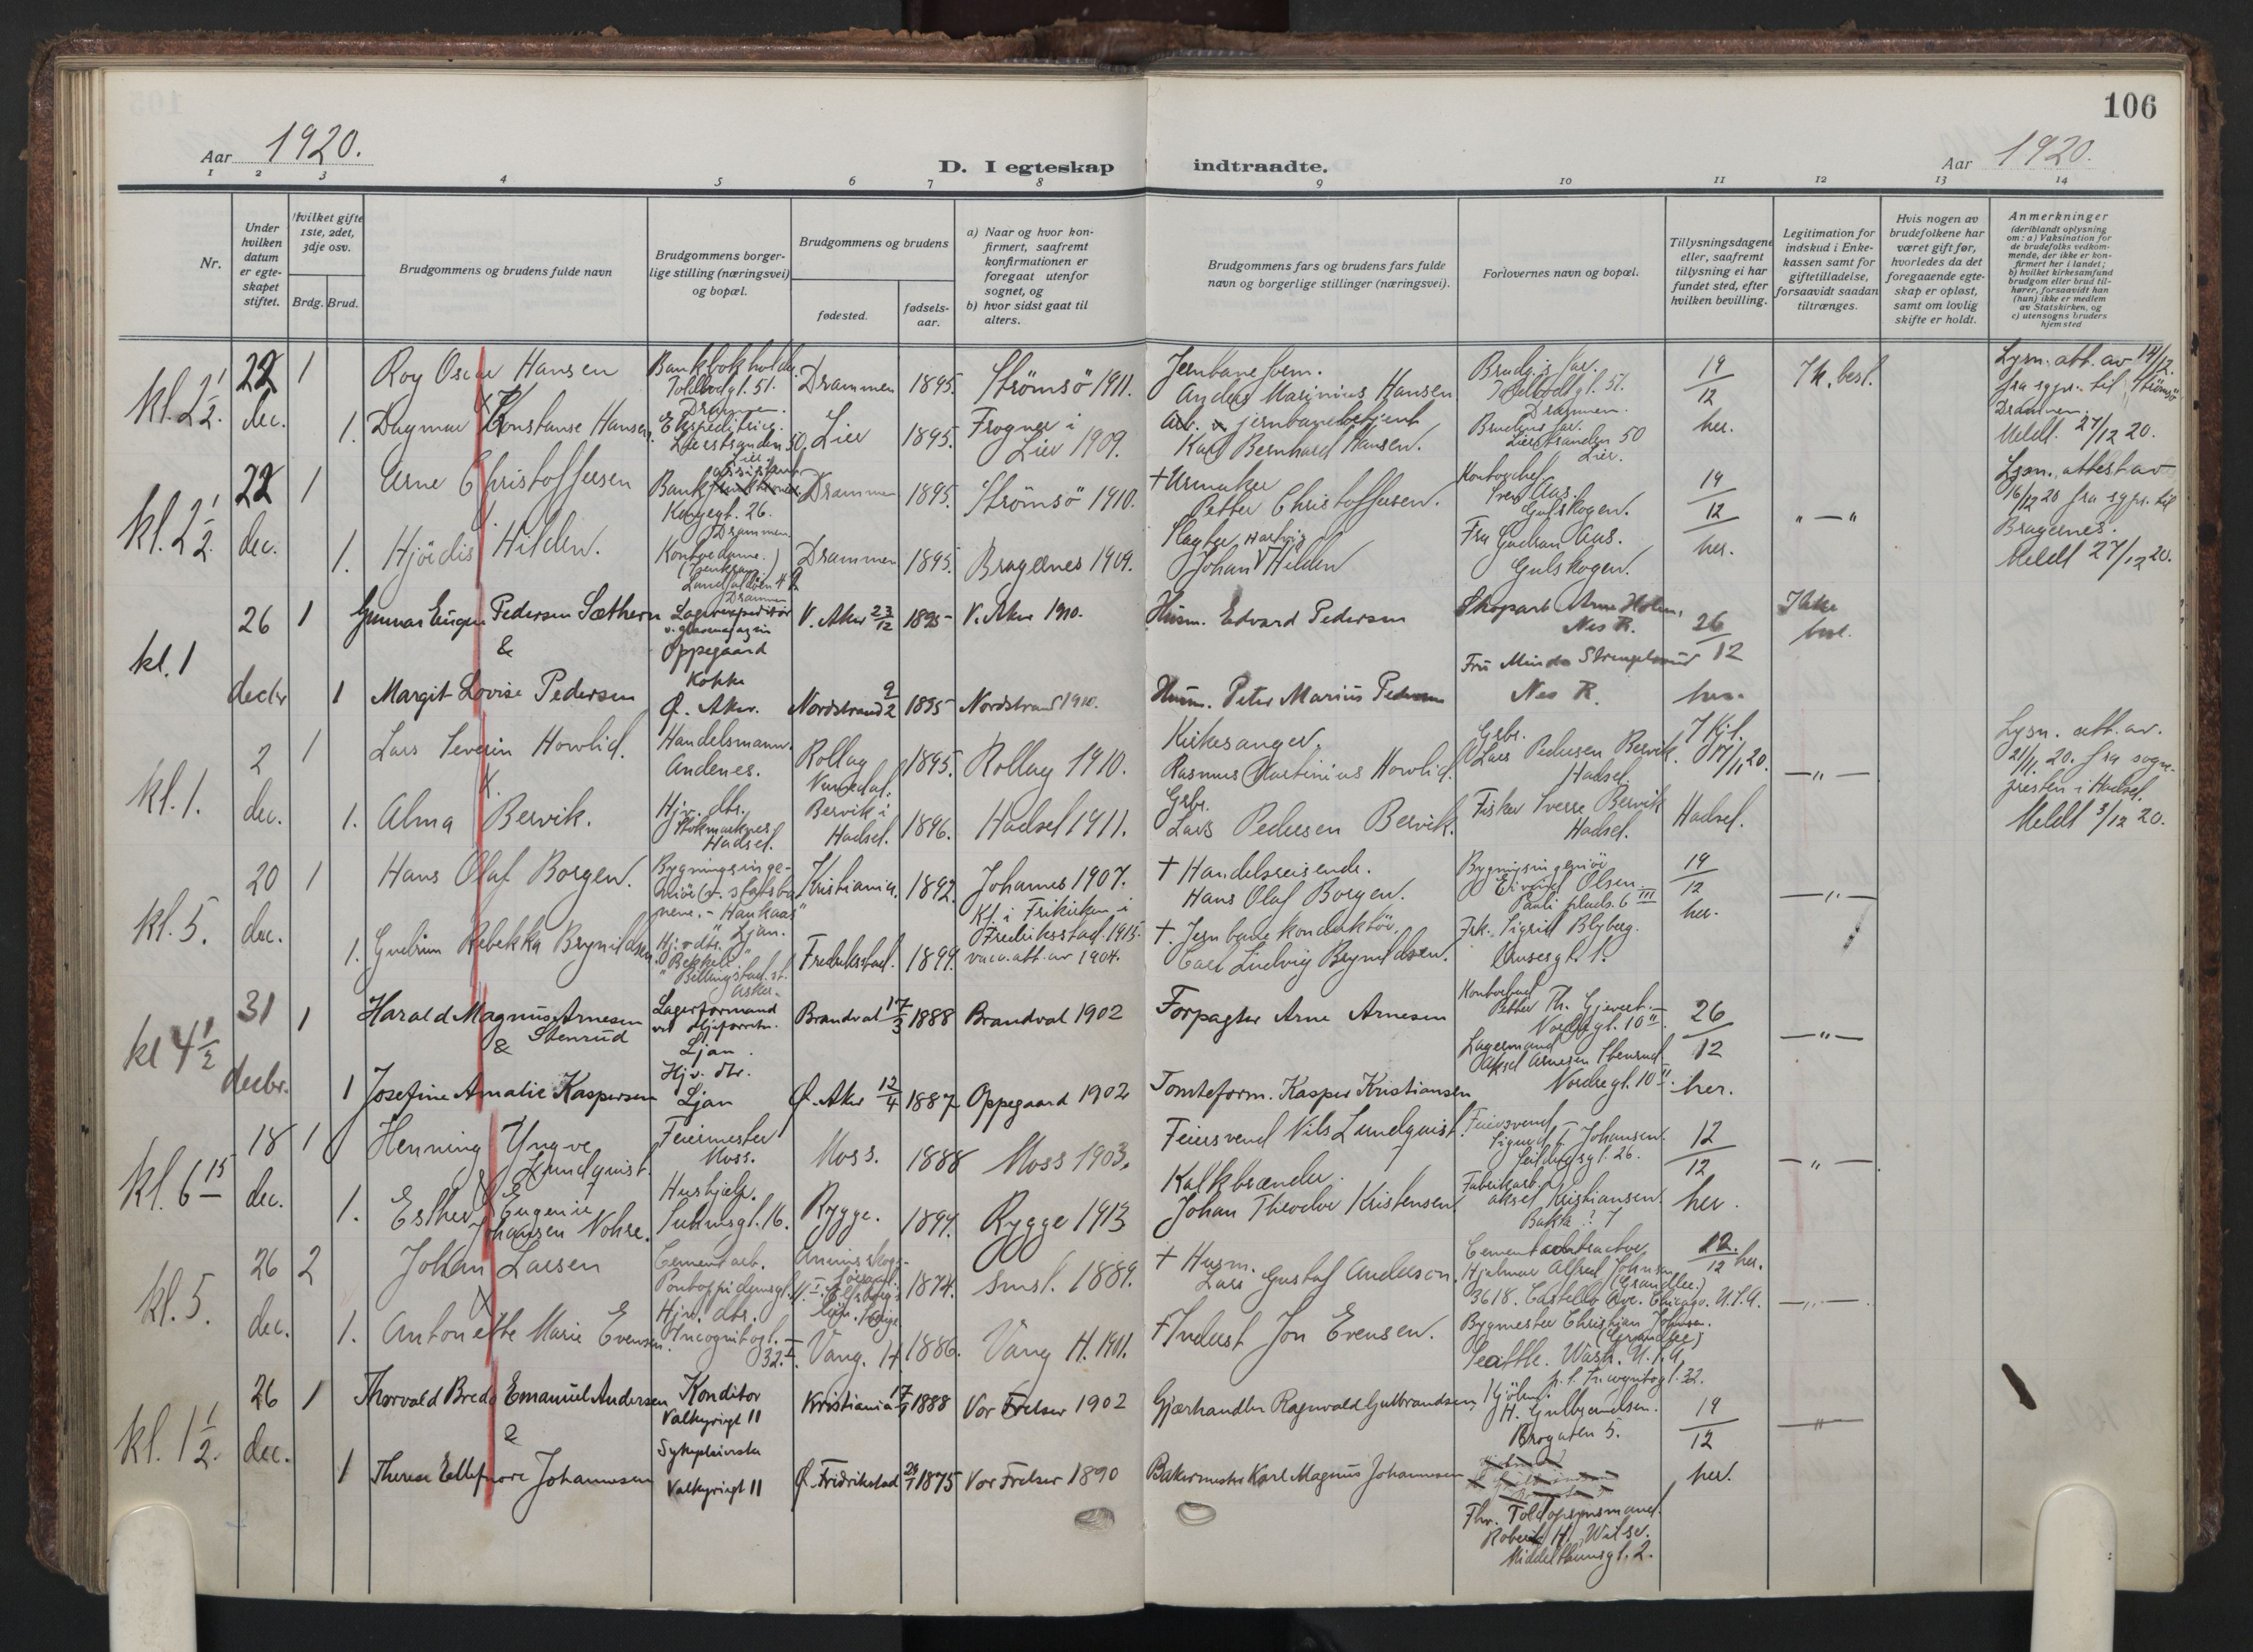 106
Aar 1920.
D. I egteskap indtraadte.
Aar 1920.
1 2 3 4 5 6 7 8 9 10 11 12 13 14
Nr.
Under hvilken datum er egteskapet stiftet.
Hvilket gifte 1ste, 2det, 3dje osv.
Brdg. Brud.
Brudgommens og brudens fulde navn
Brudgommens borgerlige stilling (næringsvei) og bopæl.
Brudgommens og brudens
fødested.
fødselsaar.
a) Naar og hvor konfirmert, saafremt konfirmationen er foregaat utenfor sognet, og
b) hvor sidst gaat til alters.
Brudgommens fars og brudens fars fulde navn og borgerlige stillinger (næringsvei).
Forlovernes navn og bopæl.
Tillysningsdagene eller, saafremt tillysning ei har fundet sted, efter hvilken bevilling.
Legitimation for indskud i Enkekassen samt for giftetilladelse, forsaavidt saadan tiltrænges.
Hvis nogen av brudefolkene har været gift før, hvorledes da det foregaaende egteskap er opløst, samt om lovlig skifte er holdt.
Anmerkninger
(deriblandt oplysning om: a) Vaksination for de brudefolks vedkommende, der ikke er konfirmert her i landet; b) hvilket kirkesamfund brudgom eller brud tilhører, forsaavidt han (hun) ikke er medlem av Statskirken, og c) utensogns bruders hjemsted
kl. 2 1/2. 22 dec. 1
Roy Oscar Hansen
Bankbokholder. Toldbodgt. 51. Drammen.
Drammen 1895. Strømsö 1911.
Anders Marinius Hansen
Brudg.s far. Toldbodgt. 51. Drammen.
19/12 her.
Ik. best.
Lysn. att. av 14/12. fra sgpr. til Strömsö Drammen.
Meldt. 27/12 20.
1. Dagmar Konstanse Hansen.
Ekspeditrice. Lierstranden 50. Lier.
Lier 1895. Frogner i Lier 1909.
jernbanebetjent
Karl Bernhard Hansen.
Brudens far. Lierstranden 50 Lier.
kl. 2 1/2. 22 dec. 1
Arne Christoffersen
Bank assistent Kongegt. 26. Drammen
Drammen 1895. Strömsö 1910.
+ Urmaker
Petter Christoffersen.
Kontorchef Aas. Gulskogen.
19/12 her.
" — "
Lysn. attest av 16/12 20 fra sgpr. til Bragernes.
Meldt 27/12 20.
1. Hjördis Hilden.
Kontordame.
Drammen
Drammen 1895. Bragernes 1909.
Slagter Johan Hartvig Hilden
Fru Gudrun Aas. Gulskogen.
kl. 1 26 decbr 1
Gunnar Eugen Pedersen Sæthern
&
Lagerexpeditør v. glasmagasin Oppegaard
V. Aker 23/12 1895 V. Aker 1910.
Husm. Edvard Pedersen
Skoparb Arne Holm, Nes R.
26/12 her.
Ikke best.
1 Margit Lovise Pedersen
Kokke Ø. Aker.
Nordstrand 9/2 1895 Nordstrand 1910.
Husm. Peter Marius Pedersen
Fru Minda Nes R.
kl. 1. 2 dec. 1
Lars Severin Howlid.
Handelsmann. Andenes.
Rollag Numedal. 1895. Rollag 1910.
Kirkesanger.
Rasmus Martinius Howlid.
Grbr. Lars Pedersen Bervik. Hadsel.
7/11 20. Hadsel.
— " —
Lysn. att. av. 21/11. 20. fra sognepresten i Hadsel.
Meldt 3/12 20.
1. Alma Bervik.
Hjv. dtr. Stokmarknes Hadsel.
Bervik i Hadsel. 1896. Hadsel 1911.
Grbr. Lars Pedersen Bervik.
Fisker Sverre Bervik Hadsel.
kl. 5. 20 dec. 1
Hans Olaf Borgen.
Bygningsingeniör v. statsbanene. - "Haukaas" Ljan.
Kristiania. 1892. Johannes 1907.
+ Handelsreisende.
Hans Olaf Borgen.
Bygningsingeniør Eivind Olsen. Pauli plads. 6 III
19/12 her.
— " —
1. Gudrun Rebekka Brynildsen
Hj. v dtr. "Bekkeli" Billingstad. st. Asker.
Fredrikstad. 1899. Kf. i Frikirken i Fredriksstad. 1915. vacc. att. av 1904.
+ Jernbanekonduktör,
Carl Ludvig Brynildsen.
Frk. Sigrid Blyberg.
kl 4 1/2 31 decbr. 1
Harald Magnus Arnesen Stenrud
&
Lagerformand ved oljeforretn. Ljan.
Brandval 17/3 1888 Brandval 1902
Forpagter Arne Arnesen
Kontorbud Petter Th. Gjevert. Nordregt. 10 II
26/12 her.
— " —
1 Josefine Amalie Kaspersen
Hjv. dtr. Ljan
Ø. Aker 12/4 1887 Oppegaard 1902
Tomteform. Kasper Kristiansen
Lagermand Aksel Arnesen Stenrud Nordregt. 10 II.
kl. 6 15 18 dec. 1
Henning Yngve Lundquist.
Feiermester Moss.
Moss. 1888 Moss 1903.
Feiersvend Nils Lundquist.
Feiersvend Sigurd Johansen. Seildugsgt. 26.
12/12 her.
— " —
1. Esther Eugenie Johansen Nohre.
Hushjælp. Suhmsgt. 16.
Rygge. 1894. Rygge 1913
Kalkbrænder.
Johan Theodor Kristensen
Fabrikarb. Aksel Kristiansen.
kl. 5. 26 dec. 2
Johan Larsen
Cementarb. Pontoppidansgt.
1874. Smst. 1889.
+ Husm. Lars Gustaf Anderson.
Hjalmar Alfred Johnson (Grandlee.) 3618. Castello Ave. Chicago. U.S.A.
12/12 her.
— " —
1. Antonette Marie Evensen.
Hjv. dtr. Incognitogt. 32. I.
Vang. H 1886. Vang H. 1901.
+ Inderst Jon Evensen.
Bygmester Christian Johnson. (Grandlee) Seattle. Wash. U.S.A. p.t. Incognitogt. 32.
kl. 1 1/2. 26 dec. 1
Thorvald Bredo Emanuel Andersen
&
Konditor Valkyriegt 11
Kristiania 1888 Vor Frelser 1902
Gjærhandler Ragnvald Gulbrandsen
H. Gulbrandsen. Brogaten 5.
19/12 her.
— " —
1 Therese Ellefnore Johannesen
Sykepleierske Valkyriegt 11
Ø. Fredrikstad 1875 Vor Frelser 1890
Bakermester Karl Magnus Johannesen
Fhv. Toldopsynsmand. Robert H. Wilse. Middelthunsgt. 2.